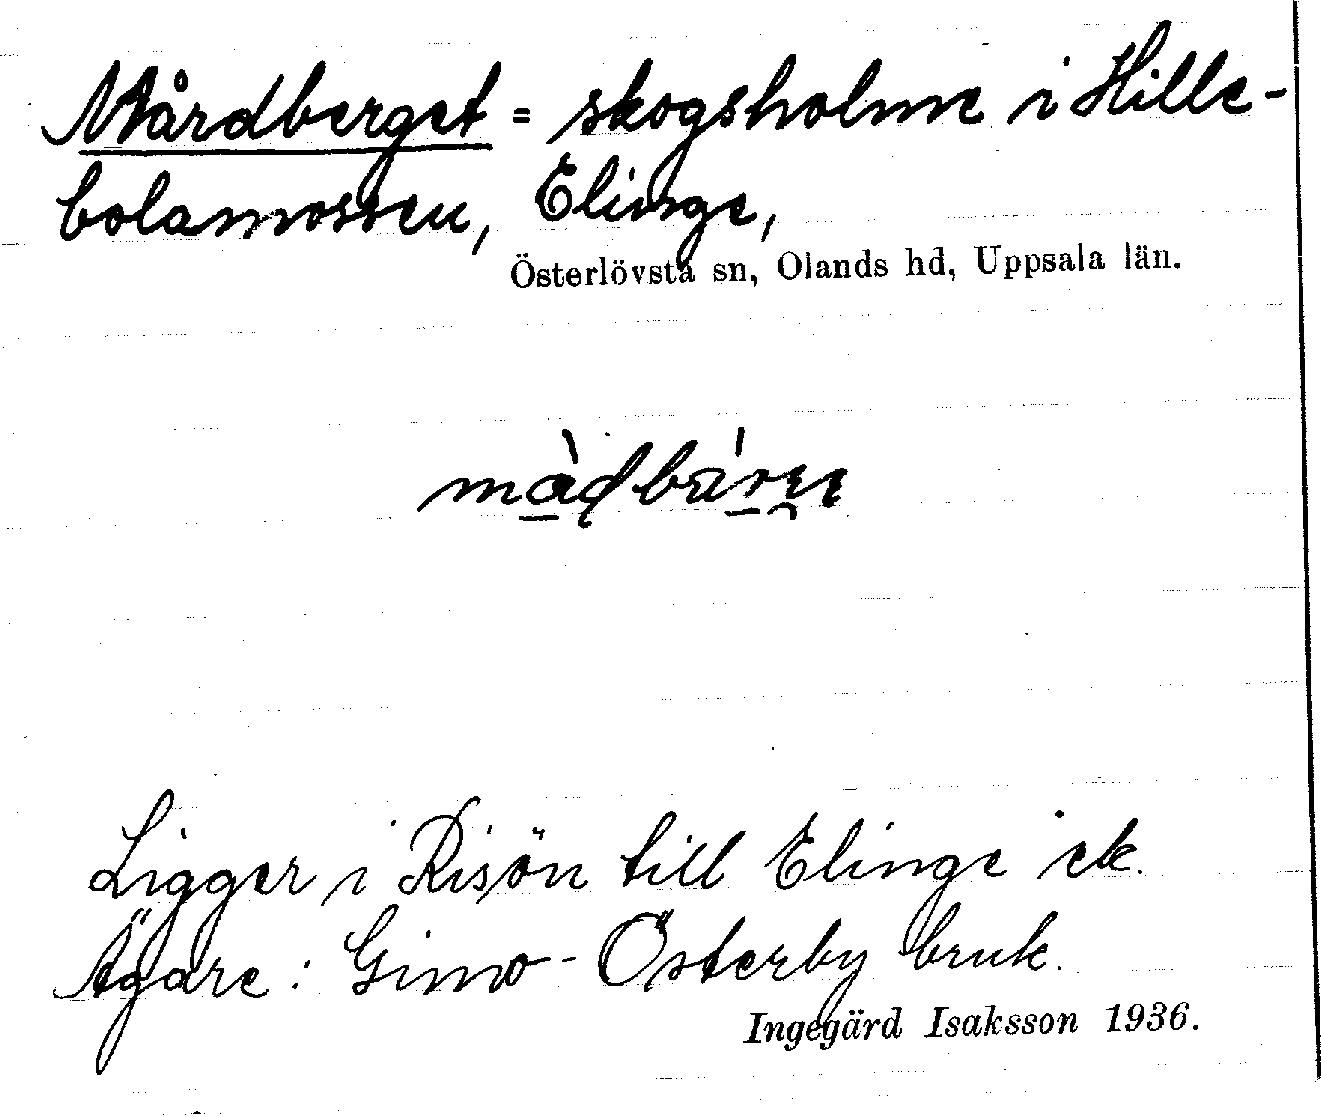 Mårdberget = skogsholme i Hille-
bolamossen, Elinge,
Österlövsta sn, Olands hd, Uppsala län.
Ligger i Risön till Elinge ek.
Ägare: Gimo-Österby bruk.
Ingegärd Isaksson 1936.